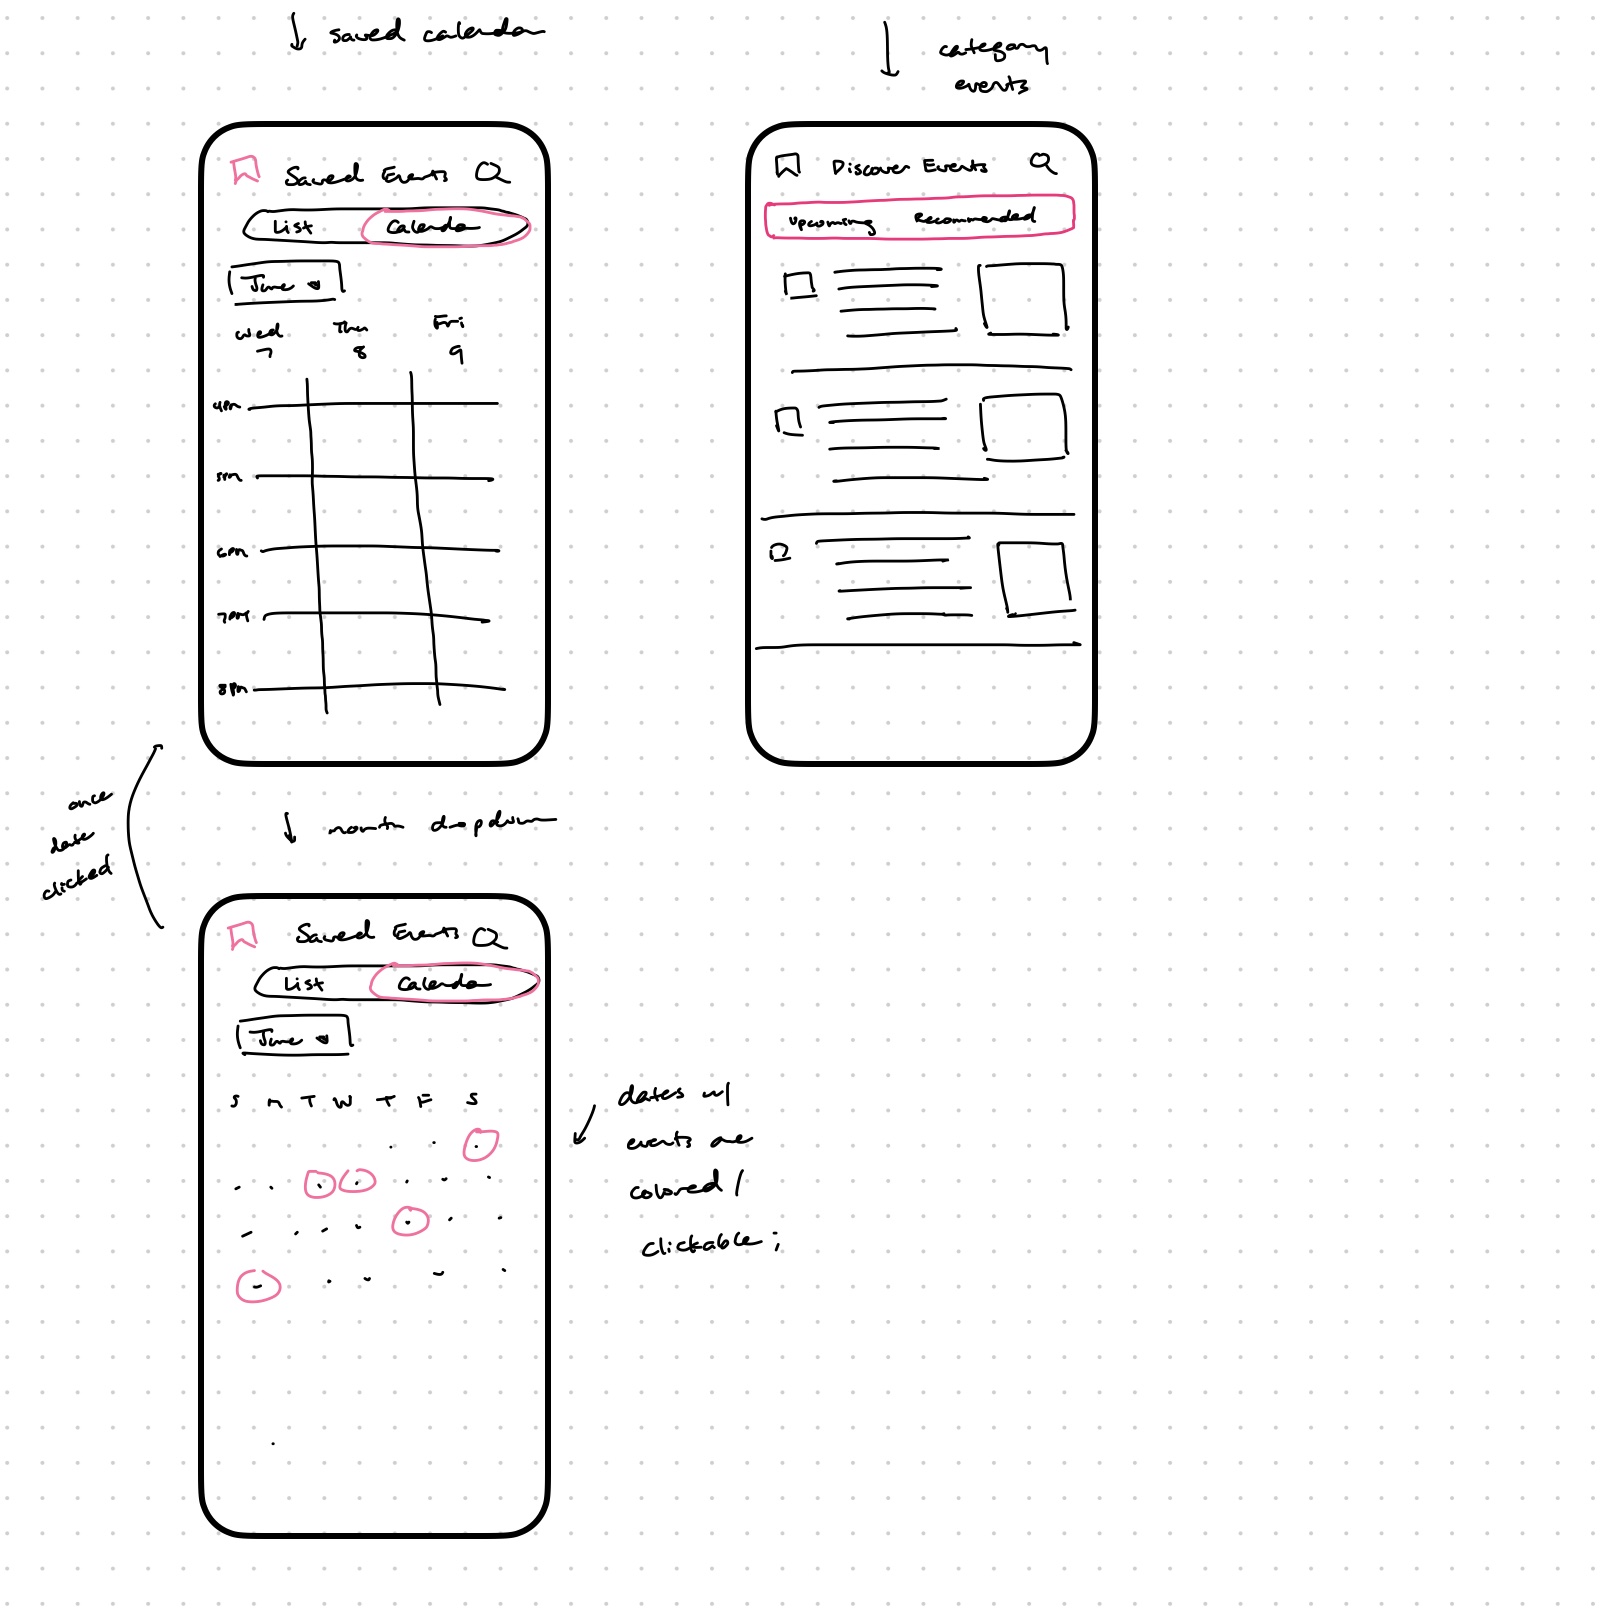 saved calendar
category
events
Saved Events
List Calendar
June
Wed Thu Fri
7 8 9
4PM
5PM
6PM
7PM
8PM
Discover Events
Upcoming Recommended
once
date
clicked
month dropdown
Saved Events
List Calendar
June
S M T W T F S
dates w/
events are
colored /
clickable ;